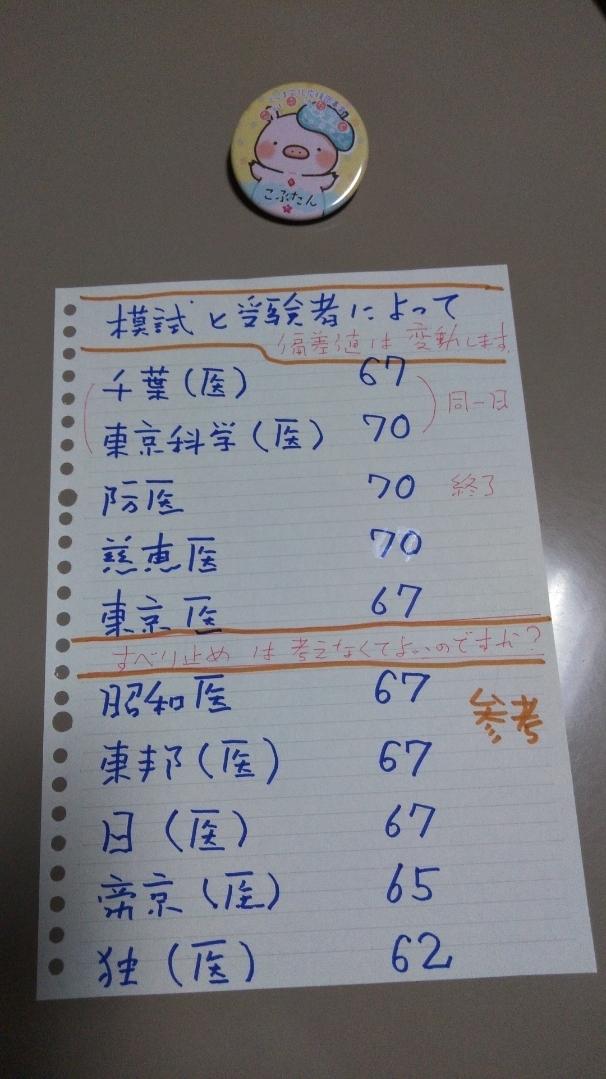 こぶたん
模試と受験者によって
偏差値は変動します
千葉(医) 67
東京科学(医) 70 同一日
防医 70 終了
慈恵医 70
東京医 67
すべり止めは考えなくてよいのですか?
昭和医 67 参考
東邦(医) 67
日(医) 67
帝京(医) 65
独(医) 62